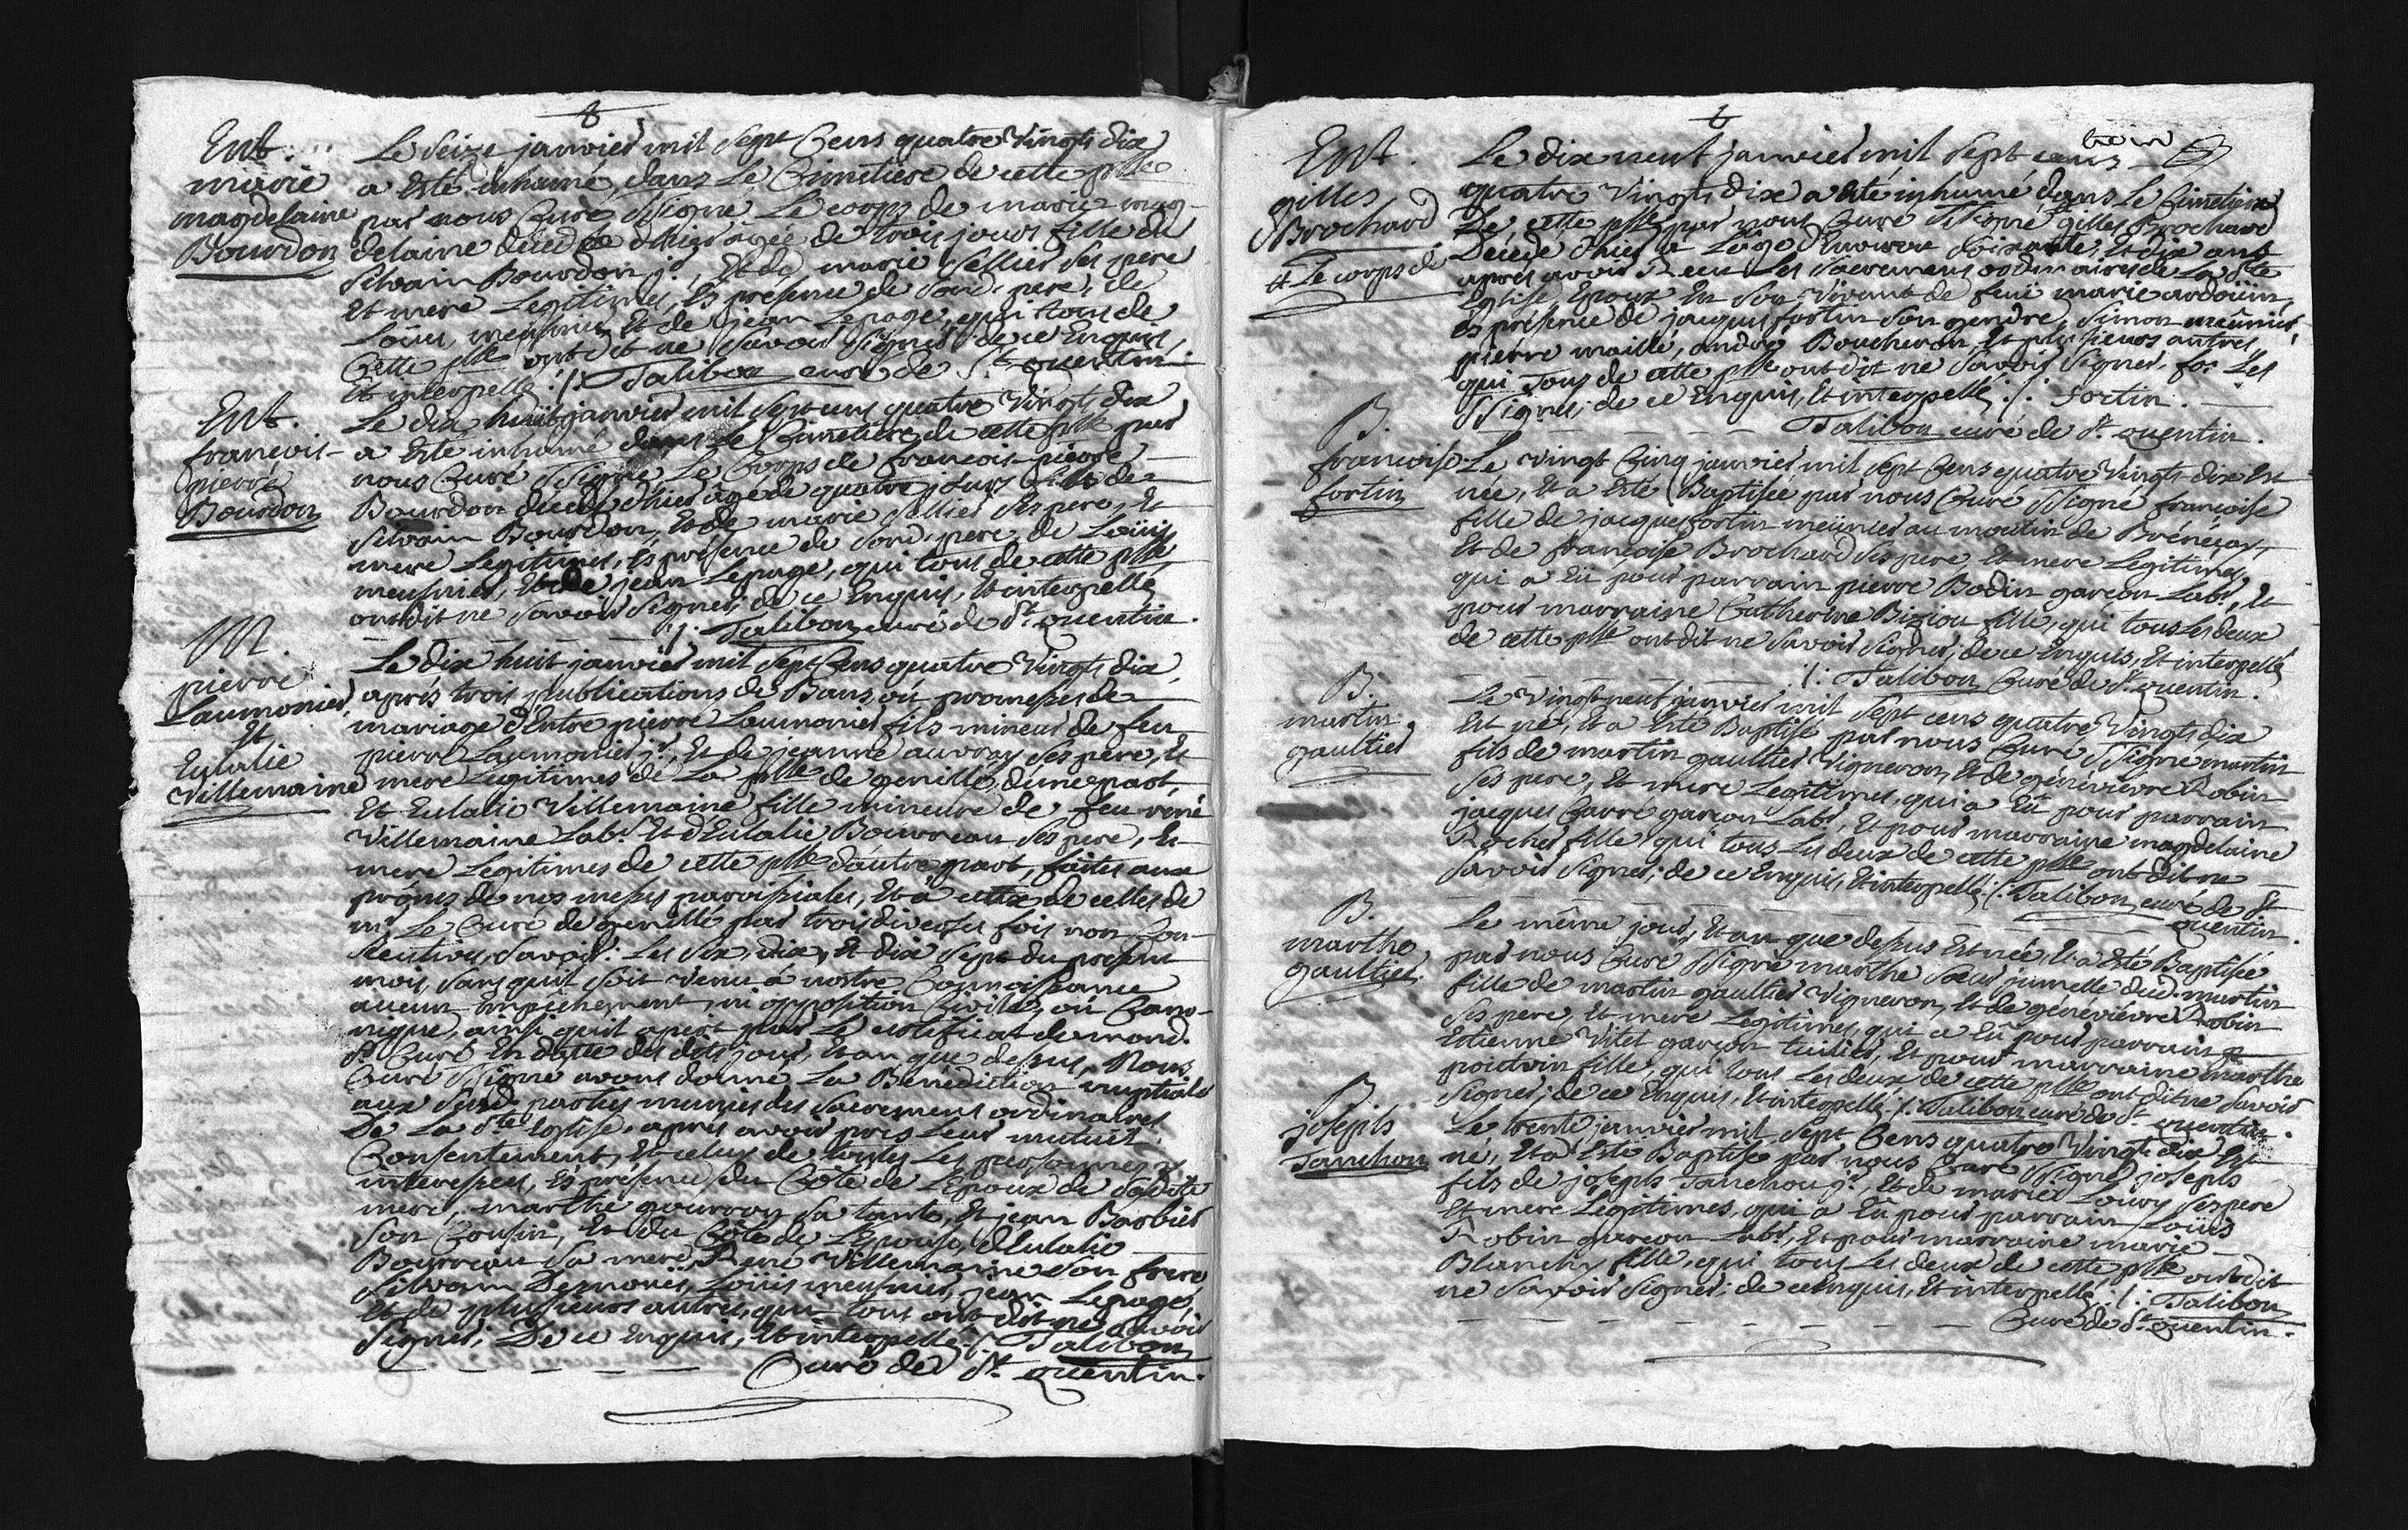 Ent.
marie
magdelaine
Bourdon
Le Seize janvier mil Sept Cens quatre Vingts dix
a Esté inhumé, dans Le Cimetiere de cette plle
par nous Curé Ssigné Le corps de marie mag-
delaine décédée d'hier âgée de trois jours fille de
Silvain Bourdon jr, Et de marie Sellier Ses pere
Et mere Legitimes, Es présence de Sond. pere, de
Loüis meusnier, Et de jean Lepage, qui tous de
Cette plle ont dit ne Savoir Signer; de ce Enquis,
Et interpellé ./. Talibon curé de St. quentin.
Ent.
françois-
pierre
Bourdon
Le dix huit janvier mil Sept cens quatre Vingts dix
a Esté inhumé dans Le Cimetiere de cette plle par
nous Curé Ssigné, Le Corps de françois-pierre
Bourdon décédé d'hier âgé de quatre jours fils de
Silvain Bourdon, Et de marie Sellier Ses pere, Et
mere Legitimes, Es présence de Sond. pere, de Loüis
meusnier, Et de jean Lepage, qui tous de cette plle
ont dit ne Savoir Signer; de ce Enquis, Et interpellé
./. Talibon curé de St. quentin.
M.
pierre
Laumonier
Et
Eulalie
Villemaine
Le dix huit janvier mil Sept Cens quatre Vingts dix,
après trois publications de Bans où promesses de
mariage d'Entre pierre Laumonier fils mineur de feu
pierre Laumonier jr, Et de jeanne auvray Ses pere, Et
mere Legitimes de La plle de genillé, d'une part,
Et Eulalie Villemaine fille mineure de feu rené
Villemaine Labr. Et d'Eulalie Bourreau Ses pere, Et
mere Legitimes de cette plle d'autre part, faites aux
prônes de nos messes paroissiales, Et à celles de
mr. Le Curé de genillé par trois diverses fois non Con-
secutives, Savoir: Les Six, dix, Et dix Sept du present
mois, Sans qu'il Soit Venu à nostre Connoissance
aucun Empêchement, ni opposition Civile, où Cano-
nique, ainsi qu'il apert par Le certificat de mond.
Sr. Curé En datte des dits jour, Et an que dessus, Nous
Curé Ssigné avons donné La Bénédiction nuptiale
aux Susd. parties munies des Sacremens ordinaires
De La Ste. Eglise, après avoir pris Leur mutuel
Consentement, Et celuy de toutes Les personnes y
interessées, Es présence, du Côté de L'Epoux de Saditte
mere, marthe gourron Sa tante, Et jean Barbier
Son Cousin, Et du Côté de L'Epouse, d'Eulalie
Bourreau Sa mere, René Villemaine Son frere
Silvain Desnoues, Loüis meusnier, jean Lepage,
Et de plusieurs autres, qui tous ont dit ne Savoir
Signer; De ce Enquis, Et interpellé ./. Talibon
Curé de St. quentin.
Ent.
gilles
Brochard
# Le corps de
Le dix neuf janvier mil Sept cens
quatre Vingts dix a Esté inhumé dans Le Cimetiere
De cette plle par nous Curé Ssigné # gilles Brochard
Décédé d'hier à L'âge d'Environ Soixante, Et dix ans
après avoir Reçu Les Sacremens ordinaires de La Ste
Eglise, Epoux En Son Vivant de feuë marie ardoüin,
Es présence de jacques fortin Son gendre, Simon meûnier,
pierre maillé, andré Boucheron, Et plusieurs autres,
qui Tous de cette plle ont dit ne Savoir Signer, fors Les
Ssignés; de ce Enquis, Et interpellé ./. fortin.
Talibon curé de St. quentin.
B.
françoise
fortin
Le Vingt Cinq janvier mil Sept Cens quatre Vingts dix Est
née, Et a Esté Baptisée par nous Curé Ssigné françoise
fille de jacques fortin meûnier au moulin de Brénéçay,
Et de françoise Brochard Ses pere, Et mere Legitimes,
qui a Eü pour parrain pierre Bodin garçon Labr, Et
pour marraine Catherine Biziou fille, qui tous Les deux
de cette plle ont dit ne Savoir Signer; de ce Enquis, Et interpellé
./. Talibon Curé de St. quentin.
B.
martin
gaultier
Le Vingt neuf janvier mil Sept cens quatre Vingts dix
Est né, Et a Esté Baptisé par nous Curé Ssigné martin
fils de martin gaultier Vigneron, Et de généviévre Robin
Ses pere, Et mere Legitimes, qui a Eû pour parrain
jacques Carré garçon Labr, Et pour marraine magdelaine
Rocher fille, qui tous Les deux de cette plle ont dit ne
Savoir Signer; de ce Enquis, Et interpellé ./. Talibon curé de St
quentin.
B.
marthe
gaultier.
Le même jour, Et an que dessus Est née, Et a Esté Baptisée
par nous Curé Ssigné marthe Sœur jumelle dud. martin
fille de martin gaultier Vigneron, Et de généviévre Robin
Ses pere, Et mere Legitimes, qui a Eû pour parrain
Etienne Vitet garçon tuilier, Et pour marraine marthe
poitevin fille, qui tous Les deux de cette plle ont dit ne Savoir
Signer; de ce Enquis, Et interpellé ./. Talibon curé de St. quentin.
B.
joseph
Tanchou
Le trente janvier mil Sept Cens quatre Vingts dix Est
né, Et a Esté Baptisé par nous Curé Ssigné joseph
fils de joseph Tanchou jr, Et de marie Loury Ses pere
Et mere Legitimes, qui a Eû pour parrain Loüis
Robin garçon Labr, Et pour marraine marie
Blanchy fille, qui tous Les deux de cette plle ont dit
ne Savoir Signer; de ce Enquis, Et interpellé ./. Talibon
Curé de St. quentin.